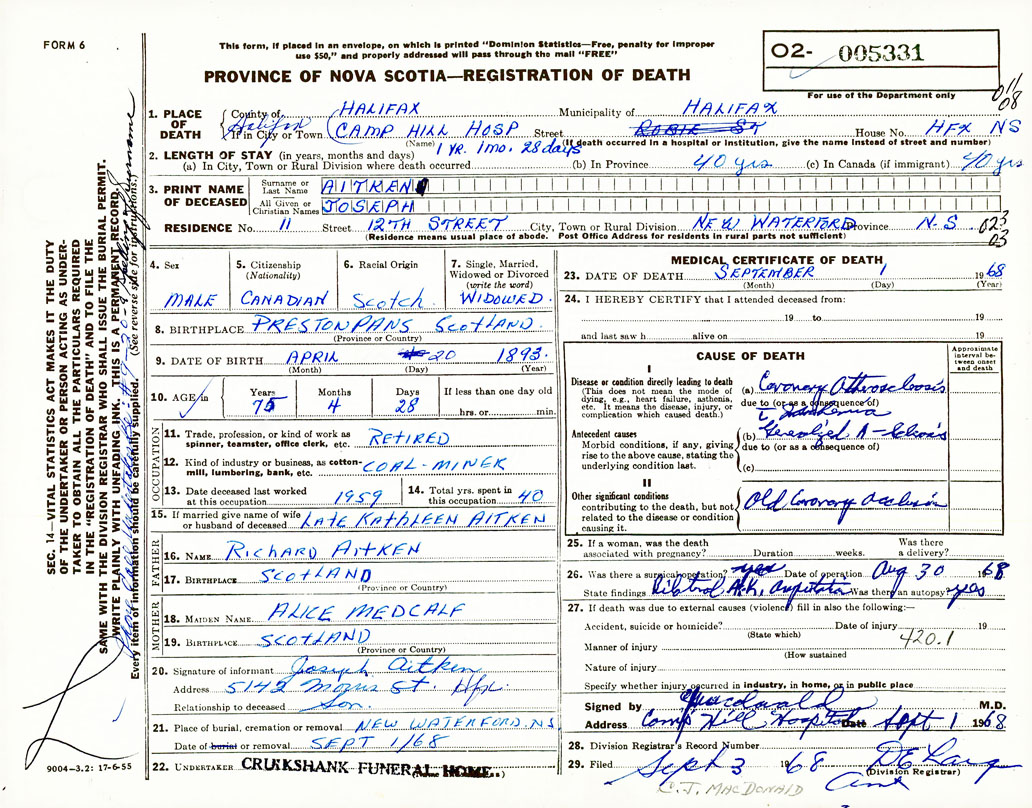 FORM 6
This form, if placed in an envelope, on which is printed "Dominion Statistics—Free, penalty for improper
use $50," and properly addressed will pass through the mail "FREE"
PROVINCE OF NOVA SCOTIA—REGISTRATION OF DEATH
02- 005331
For use of the Department only
011
08
1. PLACE OF DEATH
County of HALIFAX Municipality of HALIFAX
Halifax
If in City or Town CAMP HILL HOSP Street ROBIE ST House No. HFX NS
(Name) (If death occurred in a hospital or institution, give the name instead of street and number)
2. LENGTH OF STAY (in years, months and days) 1 YR. 1 mo. 28 days
(a) In City, Town or Rural Division where death occurred (b) In Province 40 yrs (c) In Canada (if immigrant) 40 yrs
3. PRINT NAME OF DECEASED
Surname or Last Name AITKEN
All Given or Christian Names JOSEPH
RESIDENCE No. 11 Street 12TH STREET City, Town or Rural Division NEW WATERFORD Province N.S. 023
03
(Residence means usual place of abode. Post Office Address for residents in rural parts not sufficient)
4. Sex MALE
5. Citizenship (Nationality) CANADIAN
6. Racial Origin Scotch
7. Single, Married, Widowed or Divorced (write the word) WIDOWED.
8. BIRTHPLACE PRESTONPANS SCOTLAND
(Province or Country)
9. DATE OF BIRTH APRIL 20 1893.
(Month) (Day) (Year)
10. AGE in Years 75 Months 4 Days 28 If less than one day old
hrs. or min.
OCCUPATION
11. Trade, profession, or kind of work as spinner, teamster, office clerk, etc. RETIRED
12. Kind of industry or business, as cotton-mill, lumbering, bank, etc. COAL-MINER
13. Date deceased last worked at this occupation 1959
14. Total yrs. spent in this occupation 40
15. If married give name of wife or husband of deceased LATE KATHLEEN AITKEN
FATHER
16. NAME RICHARD AITKEN
17. BIRTHPLACE SCOTLAND
(Province or Country)
MOTHER
18. MAIDEN NAME ALICE MEDCALF
19. BIRTHPLACE SCOTLAND
(Province or Country)
20. Signature of informant Joseph Aitken
Address 5142 Morris St. Hfx.
Relationship to deceased Son.
21. Place of burial, cremation or removal NEW WATERFORD. NS
Date of burial or removal SEPT 1/68
22. UNDERTAKER CRUIKSHANK FUNERAL HOME.
MEDICAL CERTIFICATE OF DEATH
23. DATE OF DEATH SEPTEMBER 1 1968
(Month) (Day) (Year)
24. I HEREBY CERTIFY that I attended deceased from:
19 to 19
and last saw h alive on 19
CAUSE OF DEATH
Approximate interval between onset and death
I
Disease or condition directly leading to death
(This does not mean the mode of dying, e.g., heart failure, asthenia, etc. It means the disease, injury, or complication which caused death.)
(a) Coronary Atherosclerosis
due to (or as a consequence of)
Antecedent causes
Morbid conditions, if any, giving rise to the above cause, stating the underlying condition last.
(b) Generalized A-sclerosis
due to (or as a consequence of)
(c)
II
Other significant conditions
contributing to the death, but not related to the disease or condition causing it.
Old Coronary Occlusion
25. If a woman, was the death associated with pregnancy? Duration weeks. Was there a delivery?
26. Was there a surgical operation? yes Date of operation Aug 30 1968
State findings Bilateral A.K. Amputation Was there an autopsy? yes
27. If death was due to external causes (violence) fill in also the following:—
Accident, suicide or homicide? Date of injury 19
(State which)
420.1
Manner of injury
(How sustained
Nature of injury
Specify whether injury occurred in industry, in home, or in public place
Signed by Macdonald M.D.
Address Camp Hill Hospital Date Sept 1 1968
28. Division Registrar's Record Number
29. Filed Sept 3 1968
(Division Registrar)
C.J. MACDONALD
SEC. 14—VITAL STATISTICS ACT MAKES IT THE DUTY
OF THE UNDERTAKER OR PERSON ACTING AS UNDER-
TAKER TO OBTAIN ALL THE PARTICULARS REQUIRED
IN THE "REGISTRATION OF DEATH" AND TO FILE THE
SAME WITH THE DIVISION REGISTRAR WHO SHALL ISSUE THE BURIAL PERMIT.
WRITE PLAINLY WITH UNFADING INK. THIS IS A PERMANENT RECORD.
Every item of information should be carefully supplied. (See reverse side for instructions.)
9004-3.2: 17-6-55